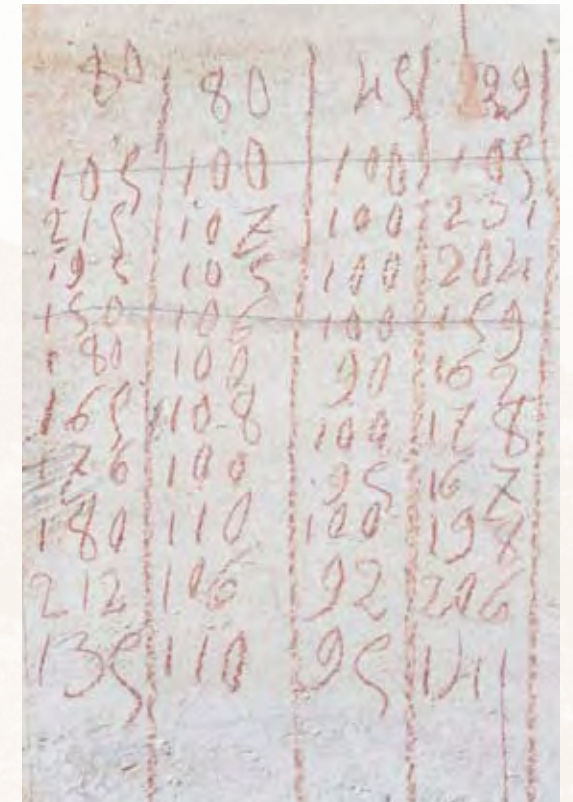 80 80 45 29
105 100 100 105
215 107 100 231
195 105 100 204
150 106 100 159
180 100 90 162
165 108 100 178
176 100 95 167
180 110 100 198
212 106 92 206
135 110 95 141